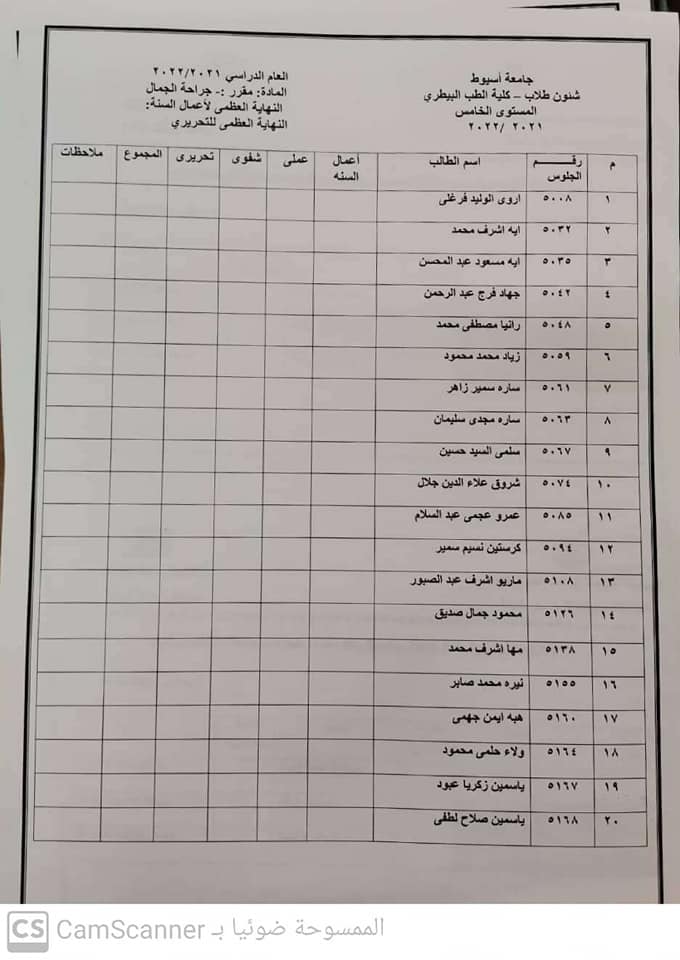 جامعة أسيوط
شئون طلاب – كلية الطب البيطري
المستوى الخامس
٢٠٢١ /٢٠٢٢
العام الدراسي ٢٠٢٢/٢٠٢١
المادة: مقرر :- جراحة الجمال
النهاية العظمى لأعمال السنة:
النهاية العظمى للتحريري
م رقـــــم الجلوس اسم الطالب أعمال السنه عملى شفوى تحريرى المجموع ملاحظات
١ ٥٠٠٨ اروى الوليد فرغلى
٢ ٥٠٣٢ ايه اشرف محمد
٣ ٥٠٣٥ ايه مسعود عبد المحسن
٤ ٥٠٤٢ جهاد فرج عبد الرحمن
٥ ٥٠٤٨ رانيا مصطفى محمد
٦ ٥٠٥٩ زياد محمد محمود
٧ ٥٠٦١ ساره سمير زاهر
٨ ٥٠٦٣ ساره مجدى سليمان
٩ ٥٠٦٧ سلمى السيد حسين
١٠ ٥٠٧٤ شروق علاء الدين جلال
١١ ٥٠٨٥ عمرو عجمى عبد السلام
١٢ ٥٠٩٤ كرستين نسيم سمير
١٣ ٥١٠٨ ماريو اشرف عبد الصبور
١٤ ٥١٢٦ محمود جمال صديق
١٥ ٥١٣٨ مها اشرف محمد
١٦ ٥١٥٥ نيره محمد صابر
١٧ ٥١٦٠ هبه ايمن جهمى
١٨ ٥١٦٤ ولاء حلمى محمود
١٩ ٥١٦٧ ياسمين زكريا عبود
٢٠ ٥١٦٨ ياسمين صلاح لطفى
CS CamScanner الممسوحة ضوئيا بـ